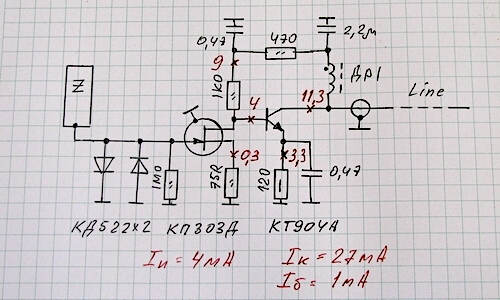 0,47
470
2,2м
9
1К0
ДР1
Z
4
11,3
Line
0,3
3,3
1М0
75R
120
0,47
КД522х2
КП303Д
КТ904А
Iи = 4мА
Iк = 27мА
Iб = 1мА